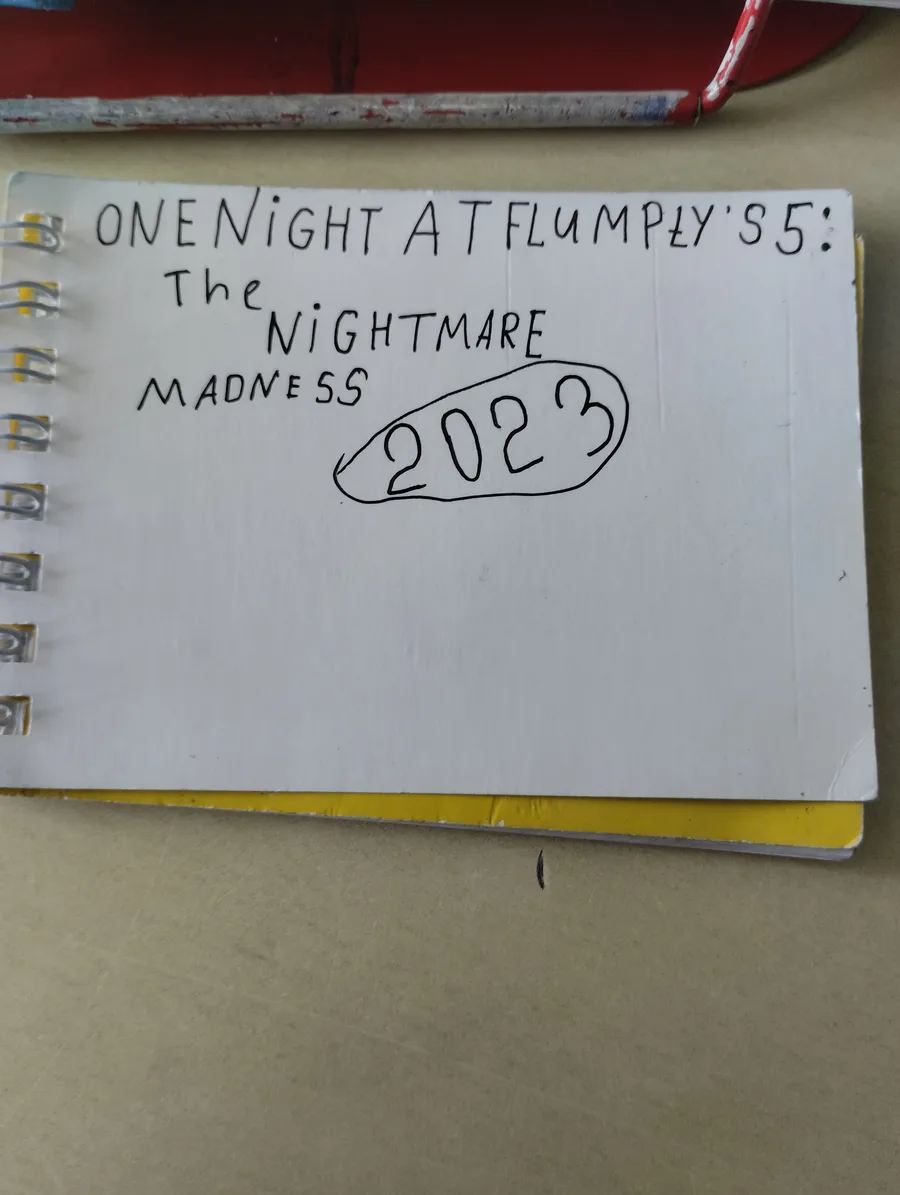 ONE NiGHT AT FLUMPŁY'S 5:
The
NiGHTMARE
MADNESS
2023